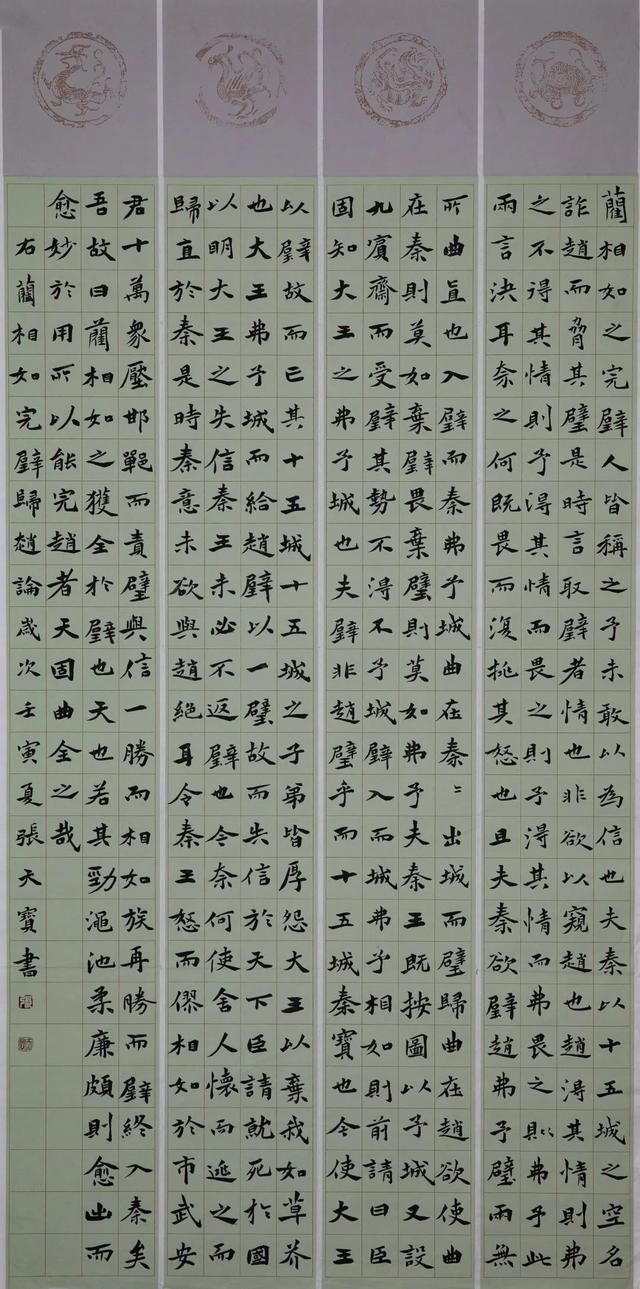 藺相如之完璧人皆稱之予未敢以為信也夫秦以十五城之空名
詐趙而脅其璧是時言取璧者情也非欲以窺趙也趙得其情則弗
之不得其情則予得其情而畏之則予得其情而弗畏之則弗予此
兩言決耳奈之何既畏而復挑其怒也且夫秦欲璧趙弗予璧兩無
所曲直也入璧而秦弗予城曲在秦〻出城而璧歸曲在趙欲使曲
在秦則莫如棄璧畏棄璧則莫如弗予夫秦王既按圖以予城又設
九賓齋而受璧其勢不得不予城璧入而城弗予相如則前請曰臣
固知大王之弗予城也夫璧非趙璧乎而十五城秦寶也今使大王
以璧故而亡其十五城十五城之子弟皆厚怨大王以棄我如草芥
也大王弗予城而給趙璧以一璧故而失信於天下臣請就死於國
以明大王之失信秦王未必不返璧也今奈何使舍人懷而逃之而
歸直於秦是時秦意未欲與趙絕耳令秦王怒而僇相如於市武安
君十萬眾壓邯鄲而責璧與信一勝而相如族再勝而璧終入秦矣
吾故曰藺相如之獲全於璧也天也若其勁澠池柔廉頗則愈出而
愈妙於用所以能完趙者天固曲全之哉
右藺相如完璧歸趙論歲次壬寅夏張天寶書